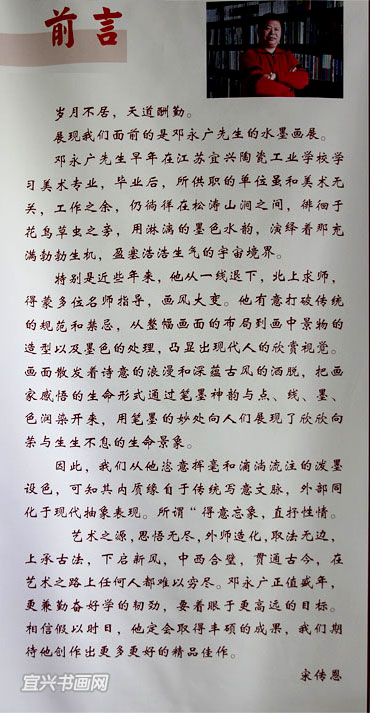 前言
岁月不居，天道酬勤。
展现我们面前的是邓永广先生的水墨画展。
邓永广先生早年在江苏宜兴陶瓷工业学校学
习美术专业，毕业后，所供职的单位虽和美术无
关，工作之余，仍徜徉在松涛山涧之间，徘徊于
花鸟草虫之旁，用淋漓的墨色水韵，演绎着那充
满勃勃生机，盈塞浩浩生气的宇宙境界。
特别是近些年来，他从一线退下，北上求师，
得蒙多位名师指导，画风大变。他有意打破传统
的规范和禁忌，从整幅画面的布局到画中景物的
造型以及墨色的处理，凸显出现代人的欣赏视觉。
画面散发着诗意的浪漫和深蕴古风的洒脱，把画
家感悟的生命形式通过笔墨神韵与点、线、墨、
色润染开来，用笔墨的妙处向人们展现了欣欣向
荣与生生不息的生命景象。
因此，我们从他恣意挥毫和滴淌流注的泼墨
设色，可知其内质缘自于传统写意文脉，外部同
化于现代抽象表现。所谓“得意忘象，直抒性情。
艺术之源，思悟无尽，外师造化，取法无边，
上承古法，下启新风，中西合璧，贯通古今，在
艺术之路上任何人都难以穷尽。邓永广正值盛年，
更兼勤奋好学的韧劲，要着眼于更高远的目标。
相信假以时日，他定会取得丰硕的成果，我们期
待他创作出更多更好的精品佳作。
宋传恩
宜兴书画网